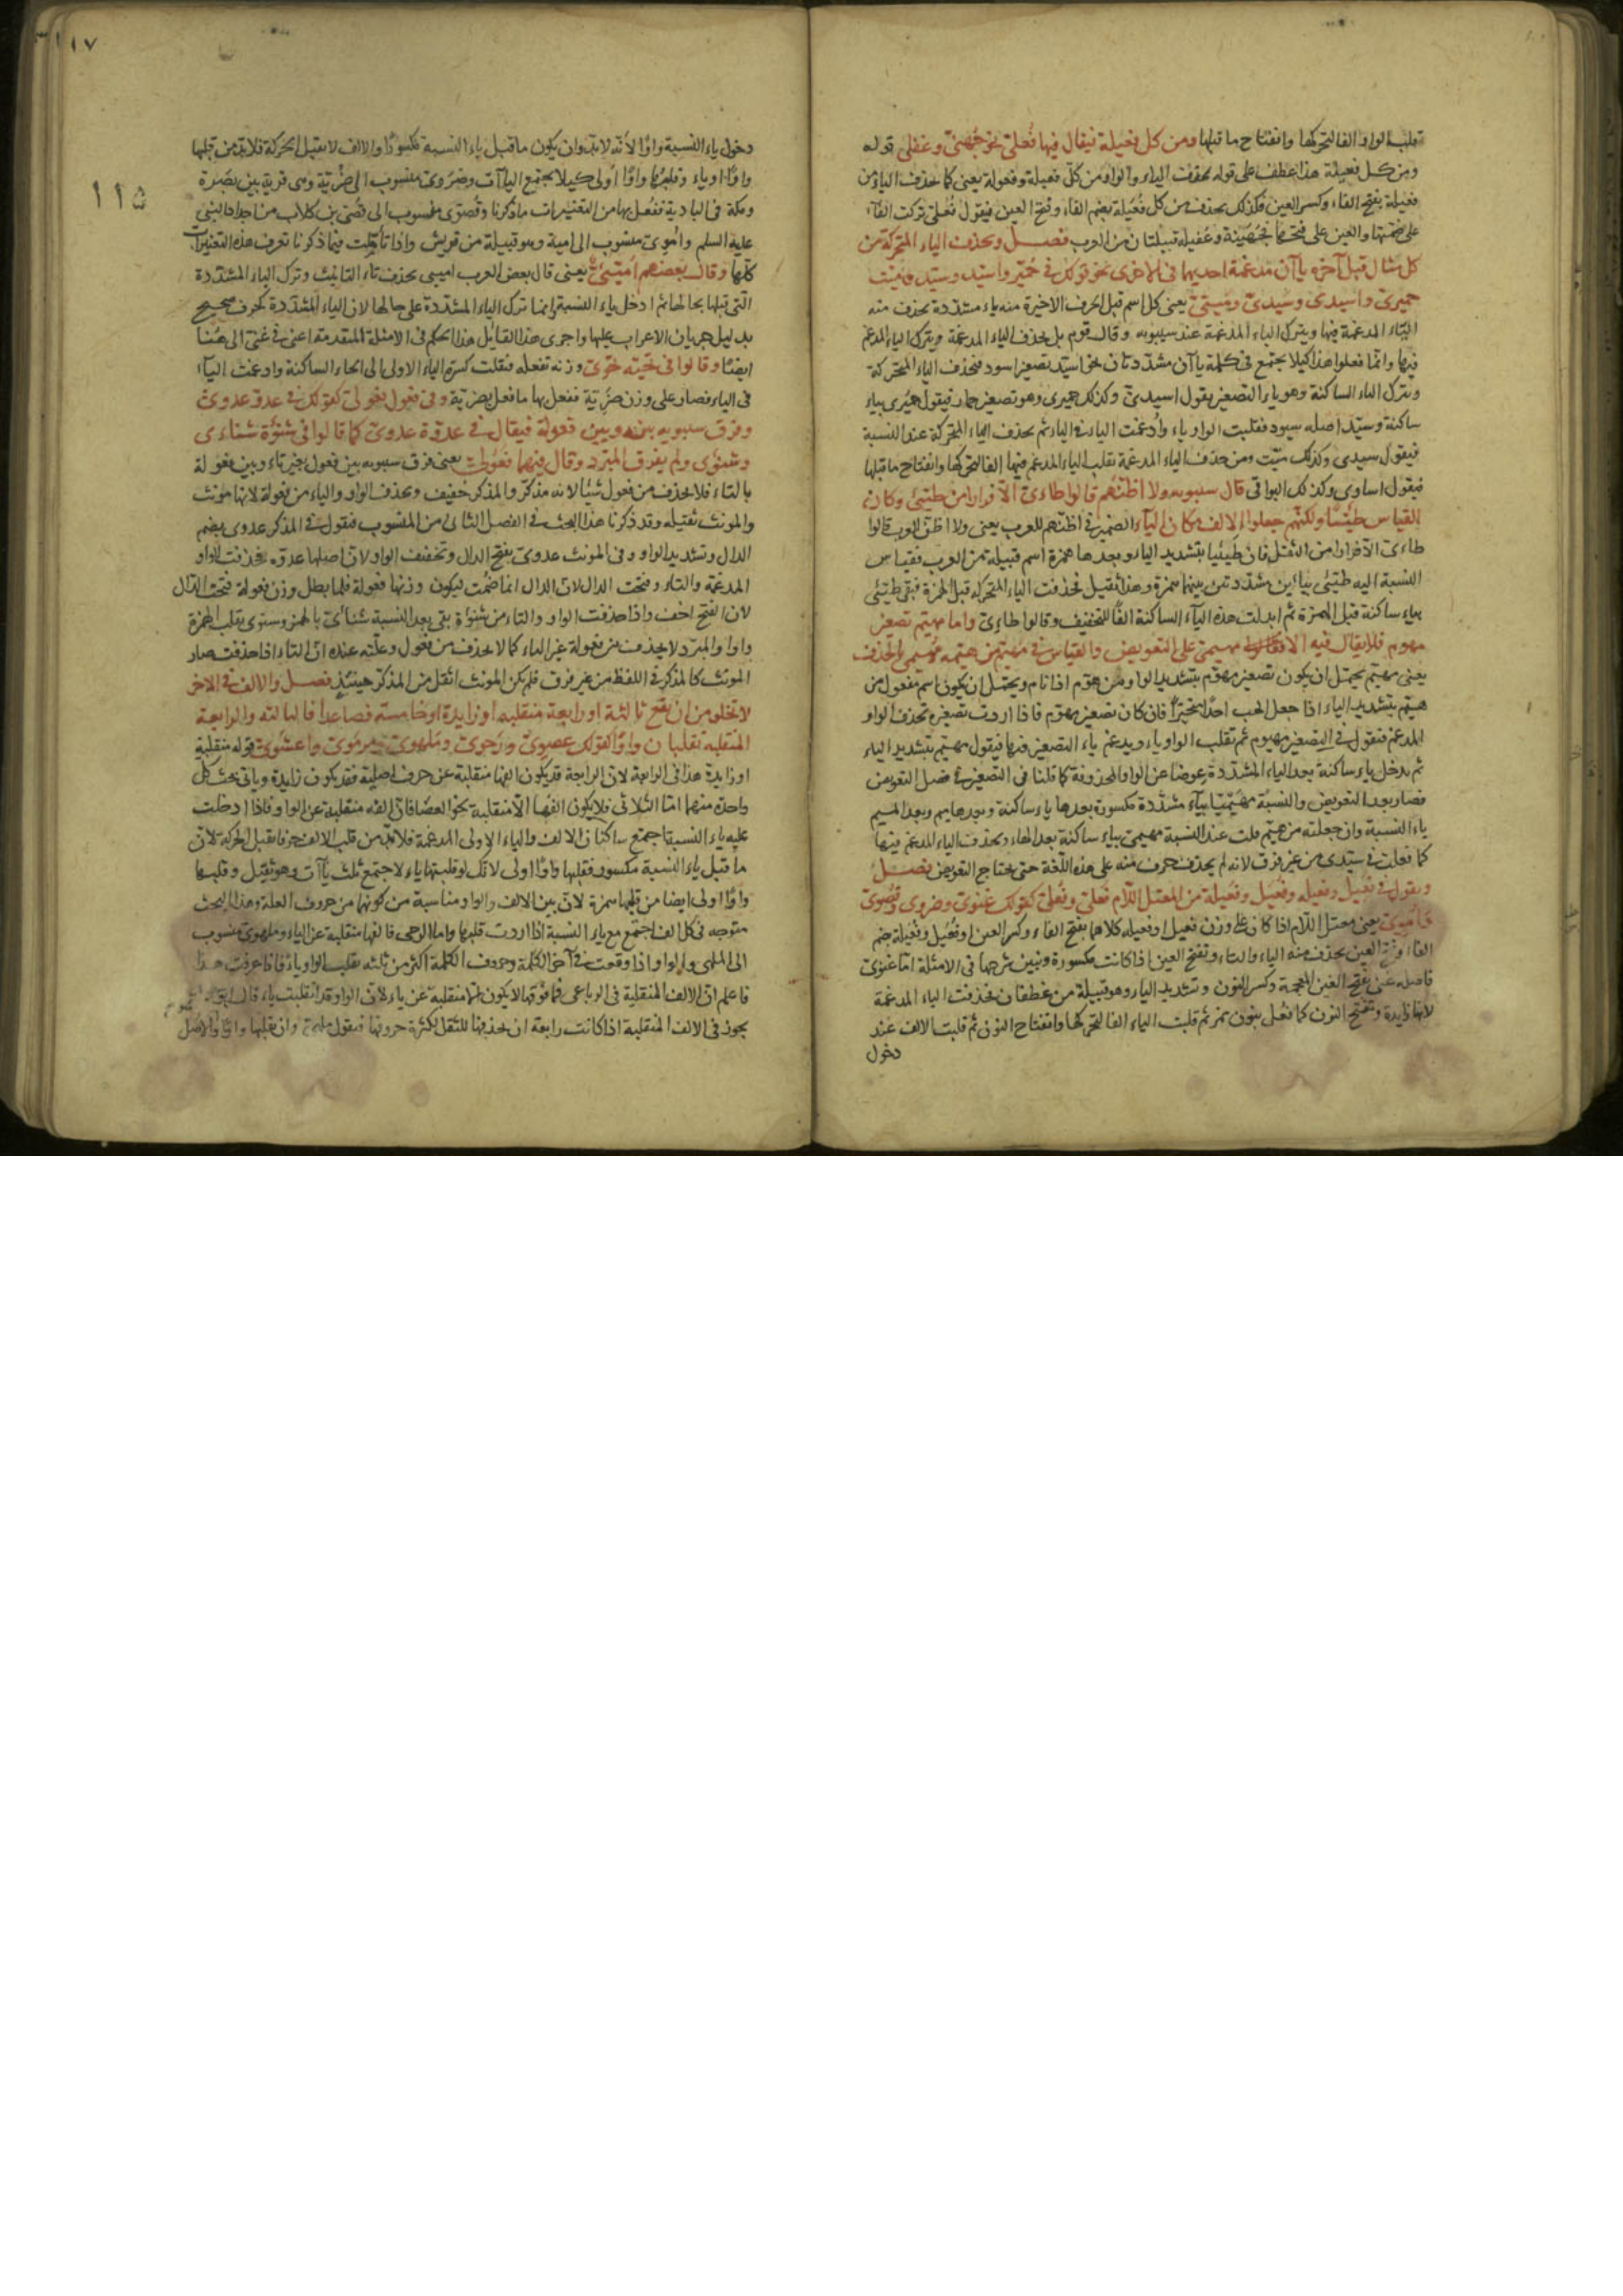 تقلب الواو الفا لتحركها وانفتاح ما قبلها ومن كل فعيلة فيقال فيها فعلى نحو جهنى وعقلى قوله
ومن كل فعيلة هذا عطف على قوله يحذف الياء والواو من كل فعيلة وفعولة يعنى كما يحذف الياء من
فعيلة بفتح الفاء وكسر العين فكذلك يحذف من كل فعيلة بضم الفاء وفتح العين فيقول فعلى تركت الفاء
على ضمتها والعين على فتحها جهينة وعقيلة قبيلتان من العرب فصل ويحذف الياء المتحركة من
كل مثال قبل آخره ياآن مدغمة احديهما فى الاخرى نحو قولك فى حمير واسيد وسيد وميت
حميرى واسيدى وسيدى وميتى يعنى كل اسم قبل الحرف الاخيرة منه ياء مشددة يحذف منه
الياء المدغمة فيها ويترك الياء المدغمة عند سيبويه وقال قوم بل يحذف الياء المدغمة ويترك الياء المدغم
فيها وانما فعلوا هذا كيلا يجتمع فى كلمة ياآن مشددتان نحو اسيد تصغير اسود فيحذف الياء المتحركة
ويترك الياء الساكنة وهو ياء التصغير يقول اسيدى وكذلك حميرى وهو تصغير حمار فيقول حميرى بياء
ساكنة وسيد اصله سيود فقلبت الواو ياء وأدغمت الياء فى الياء ثم يحذف الياء المتحركة عند النسبة
فيقول سيدى وكذلك ميت ومن حذف الياء المدغمة تقلب الياء المدغم فيها الفا لتحركها وانفتاح ما قبلها
فيقول اساوى وكذلك البواقى قال سيبويه ولا اظنهم قالوا طاءى الا فرارا من طيئى وكان
القياس طيئيا ولكنهم جعلوا الالف مكان الياء الضمير فى اظنهم للعرب يعنى ولا اظن العرب قالوا
طاءى الا فرارا من الثقل فان طيئيا بتشديد الياء وبعدها همزة اسم قبيلة من العرب فقياس
النسبة اليه طيئى بياءين مشددتين بينهما همزة وهذا ثقيل فحذفت الياء المتحركة قبل الهمزة فبقى طيئى
بياء ساكنة قبل الهمزة ثم ابدلت هذه الياء الساكنة الفا للتخفيف وقالوا طاءى واما مهيم تصغير
مهوم فلا يقال فيه الا مهيمى على التعويض والقياس فى مهيم من هيمه مهيمى بالحذف
يعنى مهيم يحتمل ان يكون تصغير مهوم بتشديد الواو من هوم اذا نام ويحتمل ان يكون اسم مفعول من
هيم بتشديد الياء اذا جعل الحب احدا متحيرا فان كان تصغير مهوم فاذا اردت تصغيره تحذف الواو
المدغم فيقول فى التصغير مهيوم ثم تقلب الواو ياء ويدغم ياء التصغير فيها فيقول مهيم بتشديد الياء
ثم يدخل ياء ساكنة بعد الياء المشددة عوضا عن الواو المحذوفة كما قلنا فى التصغير فى فصل التعويض
فصار بعد التعويض والنسبة مهيميا بياء مشددة مكسورة بعدها ياء ساكنة وبعدها ميم وبعد الميم
ياء النسبة وان جعلته من هيم قلت عند النسبة مهيمى بياء ساكنة بعد الهاء ويحذف الياء المدغم فيها
كما فعلت فى سيدى من غير فرق لانه لم يحذف حرف منه على هذه اللغة حتى يحتاج التعويض فصل
ويقول فى فعيل وفعيلة وفعيل وفعيلة من المعتل اللام فعلى وفعلى كقولك غنوى وضروى وقصوى
واموى يعنى معتل اللام اذا كان على وزن فعيل او فعيلة كلاهما بفتح الفاء وكسر العين او فعيل وفعيلة بضم
الفاء وفتح العين يحذف منه الياء والتاء وتفتح العين اذا كانت مكسورة ونبين شرحها فى الامثلة اما غنوى
فاصله غنى بفتح الغين المعجمة وكسر النون وتشديد الياء وهو قبيلة من غطفان فحذفت الياء المدغمة
لانها زايدة وتفتح النون كما فعل بنون نمر ثم قلبت الياء الفا لتحركها وانفتاح النون ثم قلبت الالف عند
دخول
١١٧
١١۵
دخول ياء النسبة واوا لأنه لابد وان يكون ما قبل ياء النسبة مكسورا والالف لا يقبل الحركة فلابد من قلبها
واوا او ياء وقلبها واوا اولى كيلا يجتمع الياآت وضروى منسوب الى ضرية وهى قرية بين بصرة
ومكة فى البادية ففعل بها من التغييرات ما ذكرنا وقصوى منسوب الى قصى بن كلاب من اجداد النبى
عليه السلم واموى منسوب الى امية وهو قبيلة من قريش واذا تأملت فيما ذكرنا تعرف هذه التغييرات
كلها وقال بعضهم اميى يعنى قال بعض العرب اميى بحذف تاء التانيث وترك الياء المشددة
التى قبلها بحالها ثم ادخل ياء النسبة وانما ترك الياء المشددة على حالها لان الياء المشددة كحرف صحيح
بدليل جريان الاعراب عليها واجرى هذا القايل هذا الحكم فى الامثلة المتقدمة اعنى فى غنى الى هنا
ايضا وقالوا فى تحية تحوى وزنه تفعلة فنقلت كسرة الياء الاولى الى الحاء الساكنة وادغمت الياء
فى الياء فصار على وزن ضرية ففعل بها ما فعل بضرية وفى فعول فعولى كقولك فى عدو عدوى
وفرق سيبويه بينه وبين فعولة فيقال فى عدوة عدوى كما قالوا فى شنوة شناءى
وشنوى ولم يفرق المبرد وقال فيهما فعولى يعنى فرق سيبويه بين فعول بغير تاء وبين فعولة
بالتاء فلا يحذف من فعول شيئا لانه مذكر والمذكر خفيف ويحذف الواو والياء من فعولة لانها مونث
والمونث ثقيلة وقد ذكرنا هذا البحث فى الفصل الثانى من المنسوب فيقول فى المذكر عدوى بضم
الدال وتشديد الواو وفى المونث عدوى بفتح الدال وتخفيف الواو لان اصلها عدوة فحذفت الواو
المدغمة والتاء وفتحت الدال لان الدال انما ضمت ليكون وزنها فعولة فلما بطل وزن فعولة فتحت الدال
لان الفتح اخف واذا حذفت الواو والتاء من شنوة بقى بعد النسبة شنائى بالهمز وشنوى بقلب الهمزة
واوا والمبرد لا يحذف من فعولة غير التاء كما لا يحذف من فعول وعلته عنده ان التاء اذا حذفت صار
المونث كالمذكر فى اللفظ من غير فرق فلم يكن المونث اثقل من المذكر حينئذ فصل والالف فى الاخر
لا تخلو من ان يقع ثالثة او رابعة منقلبة او زايدة او خامسة فصاعدا فالثالثة والرابعة
المنقلبة تقلبان واوا كقولك عصوى ورحوى وملهوى ومرموى واعشوى قوله منقلبة
او زايدة هذا فى الرابعة لان الرابعة قد يكون الفها منقلبة عن حرف اصلية فقد يكون زايدة وياتى بحث كل
واحدة منهما اما الثلاثى فلا يكون الفها الا منقلبة نحو العصا فان الفه منقلبة عن الواو فاذا ادخلت
عليه ياء النسبة اجتمع ساكنان الالف والياء الاولى المدغمة فلابد من قلب الالف حرفا يقبل الحركة لان
ما قبل ياء النسبة مكسور فقلبها واوا اولى لانك لو قلبتها ياء لاجتمع ثلث ياآت وهو ثقيل وقلبها
واوا اولى ايضا من قلبها همزة لان بين الالف والواو مناسبة من كونهما من حروف العلة وهذا البحث
متوجه فى كل الف اجتمع مع ياء النسبة اذا اردت قلبها واما الرحى فالفها منقلبة عن الياء وملهوى منسوب
الى الملهى والواو اذا وقعت فى آخر الكلمة وحروف الكلمة اكثر من ثلثة تقلب الواو ياء فاذا عرفت هذا
فاعلم ان الالف المنقلبة فى الرباعى فما فوقها لا يكون الا منقلبة عن ياء لان الواو قد انقلبت ياء قال
يجوز فى الالف المنقلبة اذا كانت رابعة ان يحذفها للثقل لكثرة حروفها فيقول ملهى وان قلبها واوا والاصل